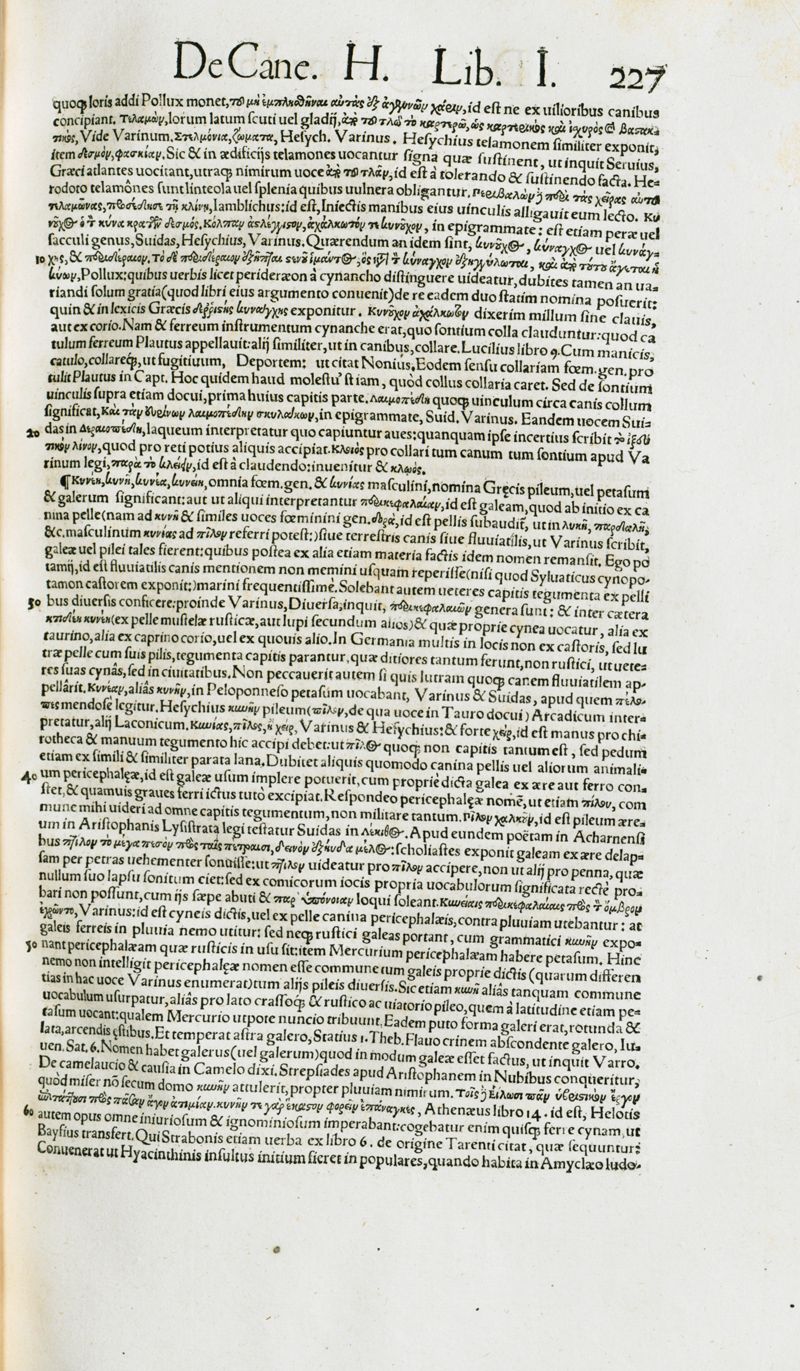 De Cane. H. Lib. I. 227
quoq; loris addi Pollux monet, id est ne ex uilioribus canibus
concipiant. Τελαμὼν, lorum latum scuti uel gladij,
Vide Varinum. Hesych. Varinus. Hesychius telamonem similiter exponit,
item Sic & in ædificijs telamones uocantur signa quæ sustinent, ut inquit Seruius,
Græci atlantes uocitant, utraq; nimirum uoce id est à tolerando & sustinendo facta. He-
rodoto telamônes sunt linteola uel splenia quibus uulnera obligantur.
Iamblichus: id est, Iniectis manibus eius uinculis alligauit eum lecto.
in epigrammate: est etiam peræ uel
sacculi genus, Suidas, Hesychius, Varinus. Quærendum an idem sint, uel
10
Pollux: quibus uerbis licet perideræon à cynancho distinguere uideatur, dubites tamen an ua-
riandi solum gratia (quod libri eius argumento conuenit) de re eadem duo statim nomina posuerit:
quin & in lexicis Græcis exponitur. dixerim millum sine clauis,
aut ex corio. Nam & ferreum instrumentum cynanche erat, quo sontium colla clauduntur: quod ca
tulum ferreum Plautus appellauit: alij similiter, ut in canibus, collare. Lucilius libro 9. Cum manicis,
catulo, collareq;, ut fugitiuum, Deportem: ut citat Nonius. Eodem sensu collariam fœm. gen. pro
tulit Plautus in Capt. Hoc quidem haud molestū st iam, quòd collus collaria caret. Sed de sontium
uinculis supra etiam docui, prima huius capitis parte. quoq; uinculum circa canis collum
significat, in epigrammate, Suid. Varinus. Eandem uocem Sui-
20 das in laqueum interpretatur quo capiuntur aues: quanquam ipse incertius scribit
quod pro reti potius aliquis accipiat. Κλοιὸς pro collari tum canum tum sontium apud Va
rinum legi, id est à claudendo: inuenitur & κλωὸς.
¶ Κυνέη, κυνῆ, κυνέα, omnia fœm. gen. & κυνέας masculini, nomina Gręcis pileum, uel petasum
& galerum significant: aut ut aliqui interpretantur id est galeam, quod ab initio ex ca
nina pelle (nam ad κυνῆ & similes uoces fœminini gen. δορὰ, id est pellis subaudit, ut in λυκῆ,
&c. masculinum κυνέας ad πῖλον referri potest:) siue terrestris canis siue fluuiatilis, ut Varinus scribit,
galeæ uel pilei tales fierent: quibus postea ex alia etiam materia factis idem nomen remansit. Ego po
tamij, id est fluuiatilis canis mentionem non memini usquam reperisse (nisi quod Syluaticus cynopo-
tamon castorem exponit:) marini frequentissimè. Solebant autem ueteres capitis tegumenta ex pelli
30 bus diuersis conficere: proinde Varinus, Diuersa, inquit, genera sunt: & inter cætera
(ex pelle mustelæ rusticæ, aut lupi secundum alios) & quæ proprie cynea uocatur, alia ex
taurino, alia ex caprino corio, uel ex quouis alio. In Germania multis in locis non ex castoris, sed lu
træ pelle cum suis pilis, tegumenta capitis parantur, quæ ditiores tantum ferunt, non rustici, ut uete-
res suas cynas, sed in ciuitatibus. Non peccauerit autem si quis lutram quoq; canem fluuiatilem ap-
pellarit. alias κυνῆν, in Peloponneso petasum uocabant, Varinus & Suidas, apud quem
mendose legitur. Hesychius pileum (πῖλον, de qua uoce in Tauro docui) Arcadicum inter-
pretatur, alij Laconicum. Varinus & Hesychius: & forte id est manus pro chi-
rotheca & manuum tegumento hic accipi debet: ut πῖλος quoq; non capitis tantum est, sed pedum
etiam ex simili & similiter parata lana. Dubitet aliquis quomodo canina pellis uel aliorum animali-
40 um pericephalęæ, id est galeæ usum implere potuerit, cum propriè dicta galea ex ære aut ferro con-
stet, & quamuis graues ferri ictus tuto excipiat. Respondeo pericephalęæ nomē, ut etiam πίλου, com
mune mihi uideri ad omne capitis tegumentum, non militare tantum. id est pileum ære-
um in Aristophanis Lysistrata legi testatur Suidas in Apud eundem poëtam in Acharnensi
bus scholiastes exponit galeam ex ære delap-
sam per petras uehementer sonuisse: ut uideatur pro πῖλον accipere, non ut alij pro penna, quæ
nullum suo lapsu sonitum ciet: sed ex comicorum iocis propria uocabulorum significata recte pro-
bari non possunt, cum ijs sæpe abuti & loqui soleant.
Varinus: id est cyneis dictis, uel ex pelle canina pericephalæis, contra pluuiam utebantur: at
galeis ferreis in pluuia nemo utitur: sed neq; rustici galeas portant, cum grammatici κυνῆν expo-
50 nant pericephalæam quæ rusticis in usu sit: item Mercurium pericephalæam habere petasum. Hinc
nemo non intelligit pericephalęæ nomen esse commune tum galeis proprie dictis (quarum differen
tias in hac uoce Varinus enumerat) tum alijs pileis diuersis. Sic etiam κυνῆ alias tanquam commune
uocabulum usurpatur, alias pro lato crassoq; & rustico ac uiatorio pileo, quem à latitudine etiam pe-
tasum uocant: qualem Mercurio utpote nuncio tribuunt. Eadem puto forma galeri erat, rotunda &
lata, arcendis ęstibus. Et temperat astra galero, Statius 1. Theb. Flauo crinem abscondente galero, Iu-
uen. Sat. 6. Nomen habet galerus (uel galerum) quod in modum galeæ esset factus, ut inquit Varro.
De camelaucio & causia in Camelo dixi. Strepsiades apud Aristophanem in Nubibus conqueritur,
quòd miser nō secum domo κυνῆν attulerit, propter pluuiam nimirum.
Athenæus libro 14. id est, Helotis
60 autem opus omne iniuriosum & ignominiosum imperabant: cogebatur enim quisq; ferre cynam, ut
Bayfius transfert. Qui Strabonis etiam uerba ex libro 6. de origine Tarenti citat, quæ sequuntur:
Conuenerat ut Hyacinthinis insultus initium fieret in populares, quando habita in Amyclæo ludo-